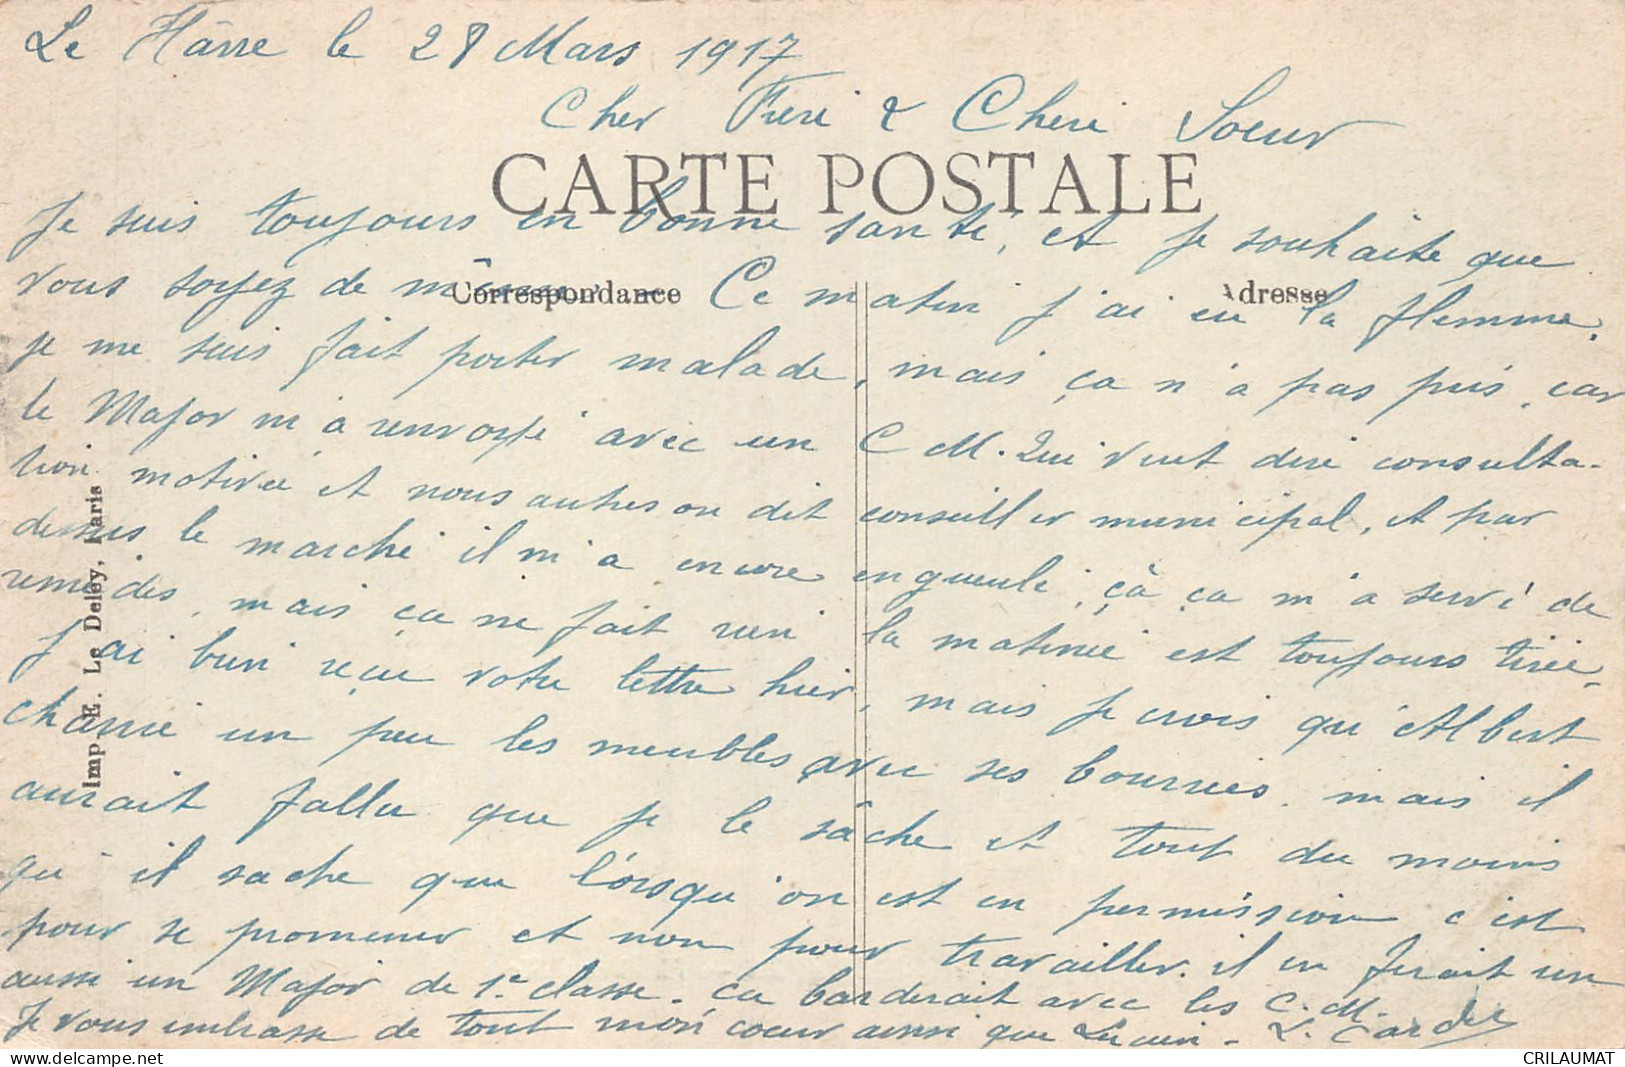 Le Hâvre le 28 Mars 1917
Cher Frere & Chere Soeur
CARTE POSTALE
Je suis toujours en bonne santé, et je souhaite que
Correspondance
Adresse
vous soyez de même. Ce matin j'ai eu la flemme,
je me suis fait porter malade, mais ça n'a pas pris, car
le Major m'a renvoyé avec un C M. Qui veut dire consulta-
tion motivée et nous autres on dit conseiller municipal, et par
dessus le marché il m'a encore engueulé, çà ça m'a servi de
remèdes, mais ça ne fait rien la matinée est toujours tirée,
J'ai bien reçu votre lettre hier, mais je crois qu'Albert
charrie un peu les meubles avec ses bourrées. mais il
aurait fallu que je le sâche et tout du moins
qu'il sache que lorsqu'on est en permission c'est
pour se promener et non pour travailler. il en ferait un
aussi un Major de 1e classe. ça barderait avec les C.M.
Je vous embrasse de tout mon coeur ainsi que Lucien - L.
Imp. E. Le Deley, Paris
CRILAUMAT